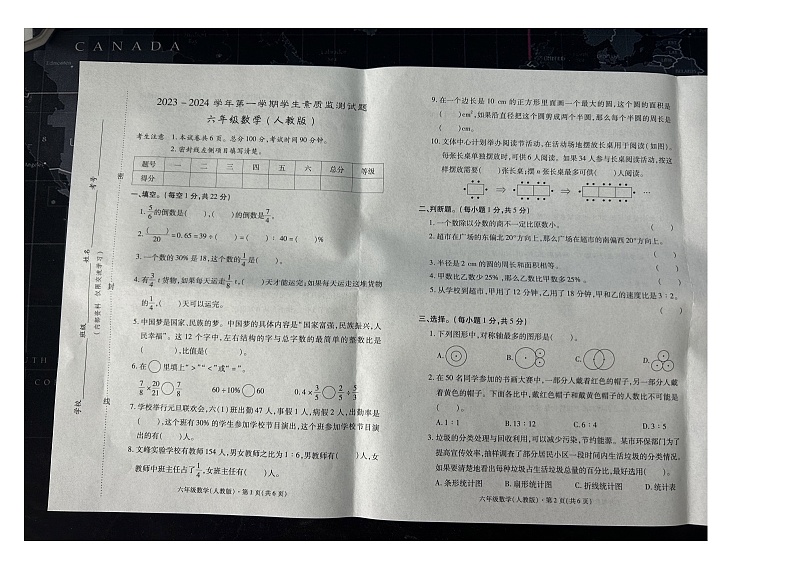 CANADA
2023-2024 学年第一学期学生素质监测试题
六年级数学(人教版)
考生注意 1. 本试卷共 6 页。总分 100 分,考试时间 90 分钟。
2. 密封线左侧项目填写清楚。
题号 一 二 三 四 五 六 总分 等级
得分
一、填空。(每空 1 分,共 22 分)
1. 5/6 的倒数是( ),( )的倒数是 7/4。
2. ( )/20 = 0.65 = 39 ÷ ( ) = ( ) : 40 = ( )%
3. 一个数的 30% 是 18,这个数的 1/4 是( )。
4. 有 3/4 t 货物,如果每天运走 1/8 t,( )天才能运完;如果每天运走这堆货物
的 1/4,( )天可以运完。
5. 中国梦是国家、民族的梦。中国梦的具体内容是“国家富强,民族振兴,人
民幸福”。这 12 个字中,左右结构的字与总字数的最简单的整数比是
( ),比值是( )。
6. 在○里填上“>”“<”或“=”。
7/8 × 20/21 ○ 7/8 60÷10% ○ 60 0.4×3/5 ○ 2/5÷5/3
7. 学校举行元旦联欢会,六(1)班出勤 47 人,事假 1 人,病假 2 人,出勤率是
( ),这个班有 30% 的学生参加学校节目演出,这个班参加学校节目演
出的有( )人。
8. 文峰实验学校有教师 154 人,男女教师之比为 1:6,男教师有( )人,女
教师中班主任占了 1/4,女班主任有( )人。
六年级数学(人教版)·第 1 页(共 6 页)
学校
班级
姓名
考号
(内部资料 仅限交流学习)
密
线
9. 在一个边长是 10 cm 的正方形里面画一个最大的圆,这个圆的面积是
( )cm²,如果沿直径把这个圆剪成两个半圆,那么每个半圆的周长是
( )cm。
10. 文体中心计划举办阅读节活动,在活动场地摆放长桌用于阅读(如图)。
每张长桌单独摆放时,可供 6 人阅读。如果 34 人参与长桌阅读活动,按这
样摆放需要( )张长桌;摆 n 张长桌最多可供( )人阅读。
二、判断题。(每小题 1 分,共 5 分)
1. 一个数除以分数的商不一定比原数小。 ( )
2. 超市在广场的东偏北 20°方向上,那么广场在超市的南偏西 20°方向上。
( )
3. 半径是 2 cm 的圆的周长和面积相等。 ( )
4. 甲数比乙数少 25%,那么乙数比甲数多 25%。 ( )
5. 从学校到超市,甲用了 12 分钟,乙用了 18 分钟,甲和乙的速度比是 3:2。
( )
三、选择。(每小题 1 分,共 5 分)
1. 下列图形中,对称轴最多的图形是( )。
A. B. C. D.
2. 在 50 名同学参加的书画大赛中,一部分人戴着红色的帽子,另一部分人戴
着黄色的帽子。下面各比中,戴红色帽子和戴黄色帽子的人数比不可能是
( )。
A. 1:1 B. 13:12 C. 6:4 D. 3:5
3. 垃圾的分类处理与回收利用,可以减少污染,节约能源。某市环保部门为了
提高宣传效率,抽样调查了部分居民小区一段时间内生活垃圾的分类情况。
如果要清楚地看出每种垃圾占生活垃圾总量的百分比,最好选用( )。
A. 条形统计图 B. 扇形统计图 C. 折线统计图 D. 统计表
六年级数学(人教版)·第 2 页(共 6 页)